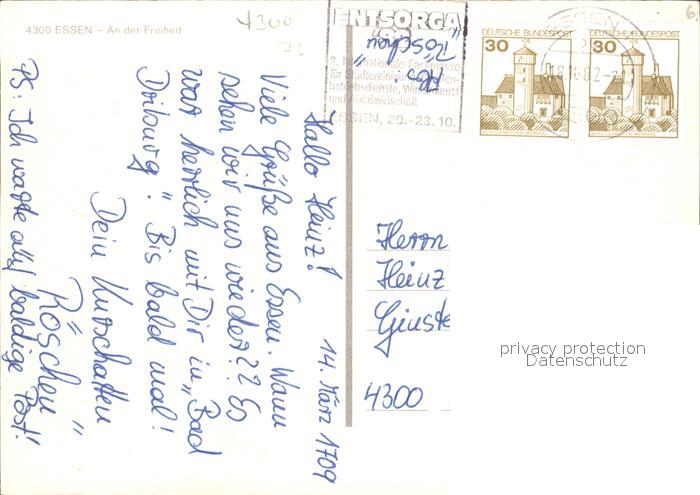 4300 ESSEN – An der Freiheit
4300
ENTSORGA
'82
2. Internationale Fachmesse
für Städtereinigung,
betriebsdienste, Winterdienst
und Abfallwirtschaft
ESSEN, 20.-23.10.
Abs.
"Röschen"
ESSEN
DEUTSCHE BUNDESPOST
30
DEUTSCHE BUNDESPOST
30
14. März 1709
Hallo Heinz!
Viele Grüße aus Essen. Wann
sehen wir uns wieder?? Es
war herrlich mit Dir in „Bad
Driburg". Bis bald mal!
Dein Kurschatten
„Röschen"
PS: Ich warte auf baldige Post!
Herrn
Heinz
Ginste
4300
privacy protection
Datenschutz